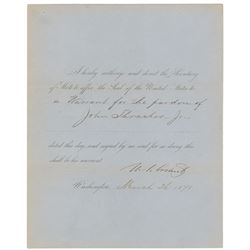 I hereby authorize and direct the Secretary
of State to affix the Seal of the United States to
a Warrant for the pardon of
John
dated this day, and signed by me, and for so doing this
shall be his warrant.
U. S. Grant
Washington, March 1871